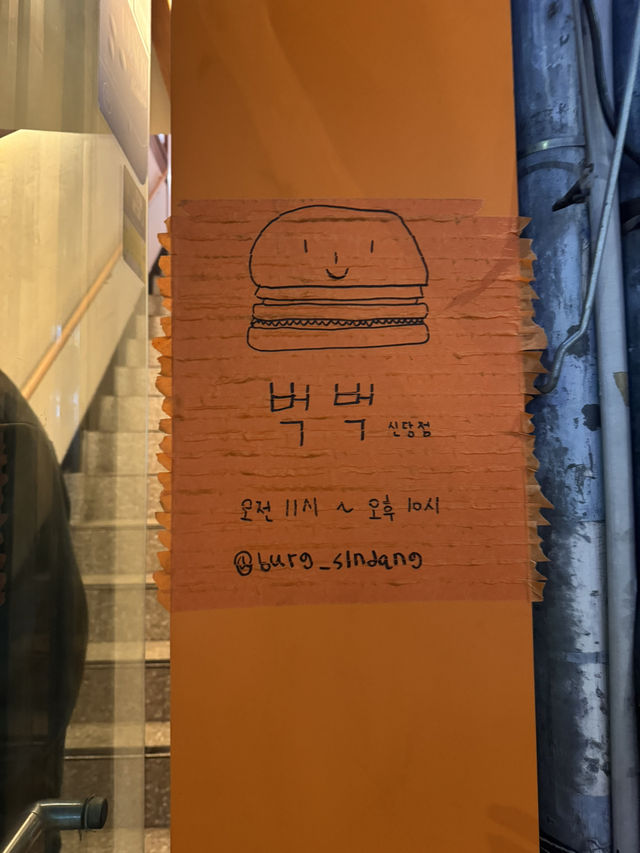 벅벅 신당점
오전 11시 ~ 오후 10시
@burg_sindang